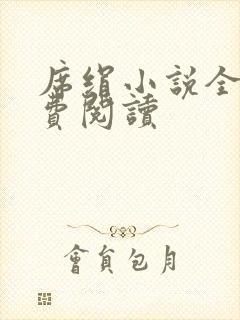 席絹小說全
費閱讀
會員包月